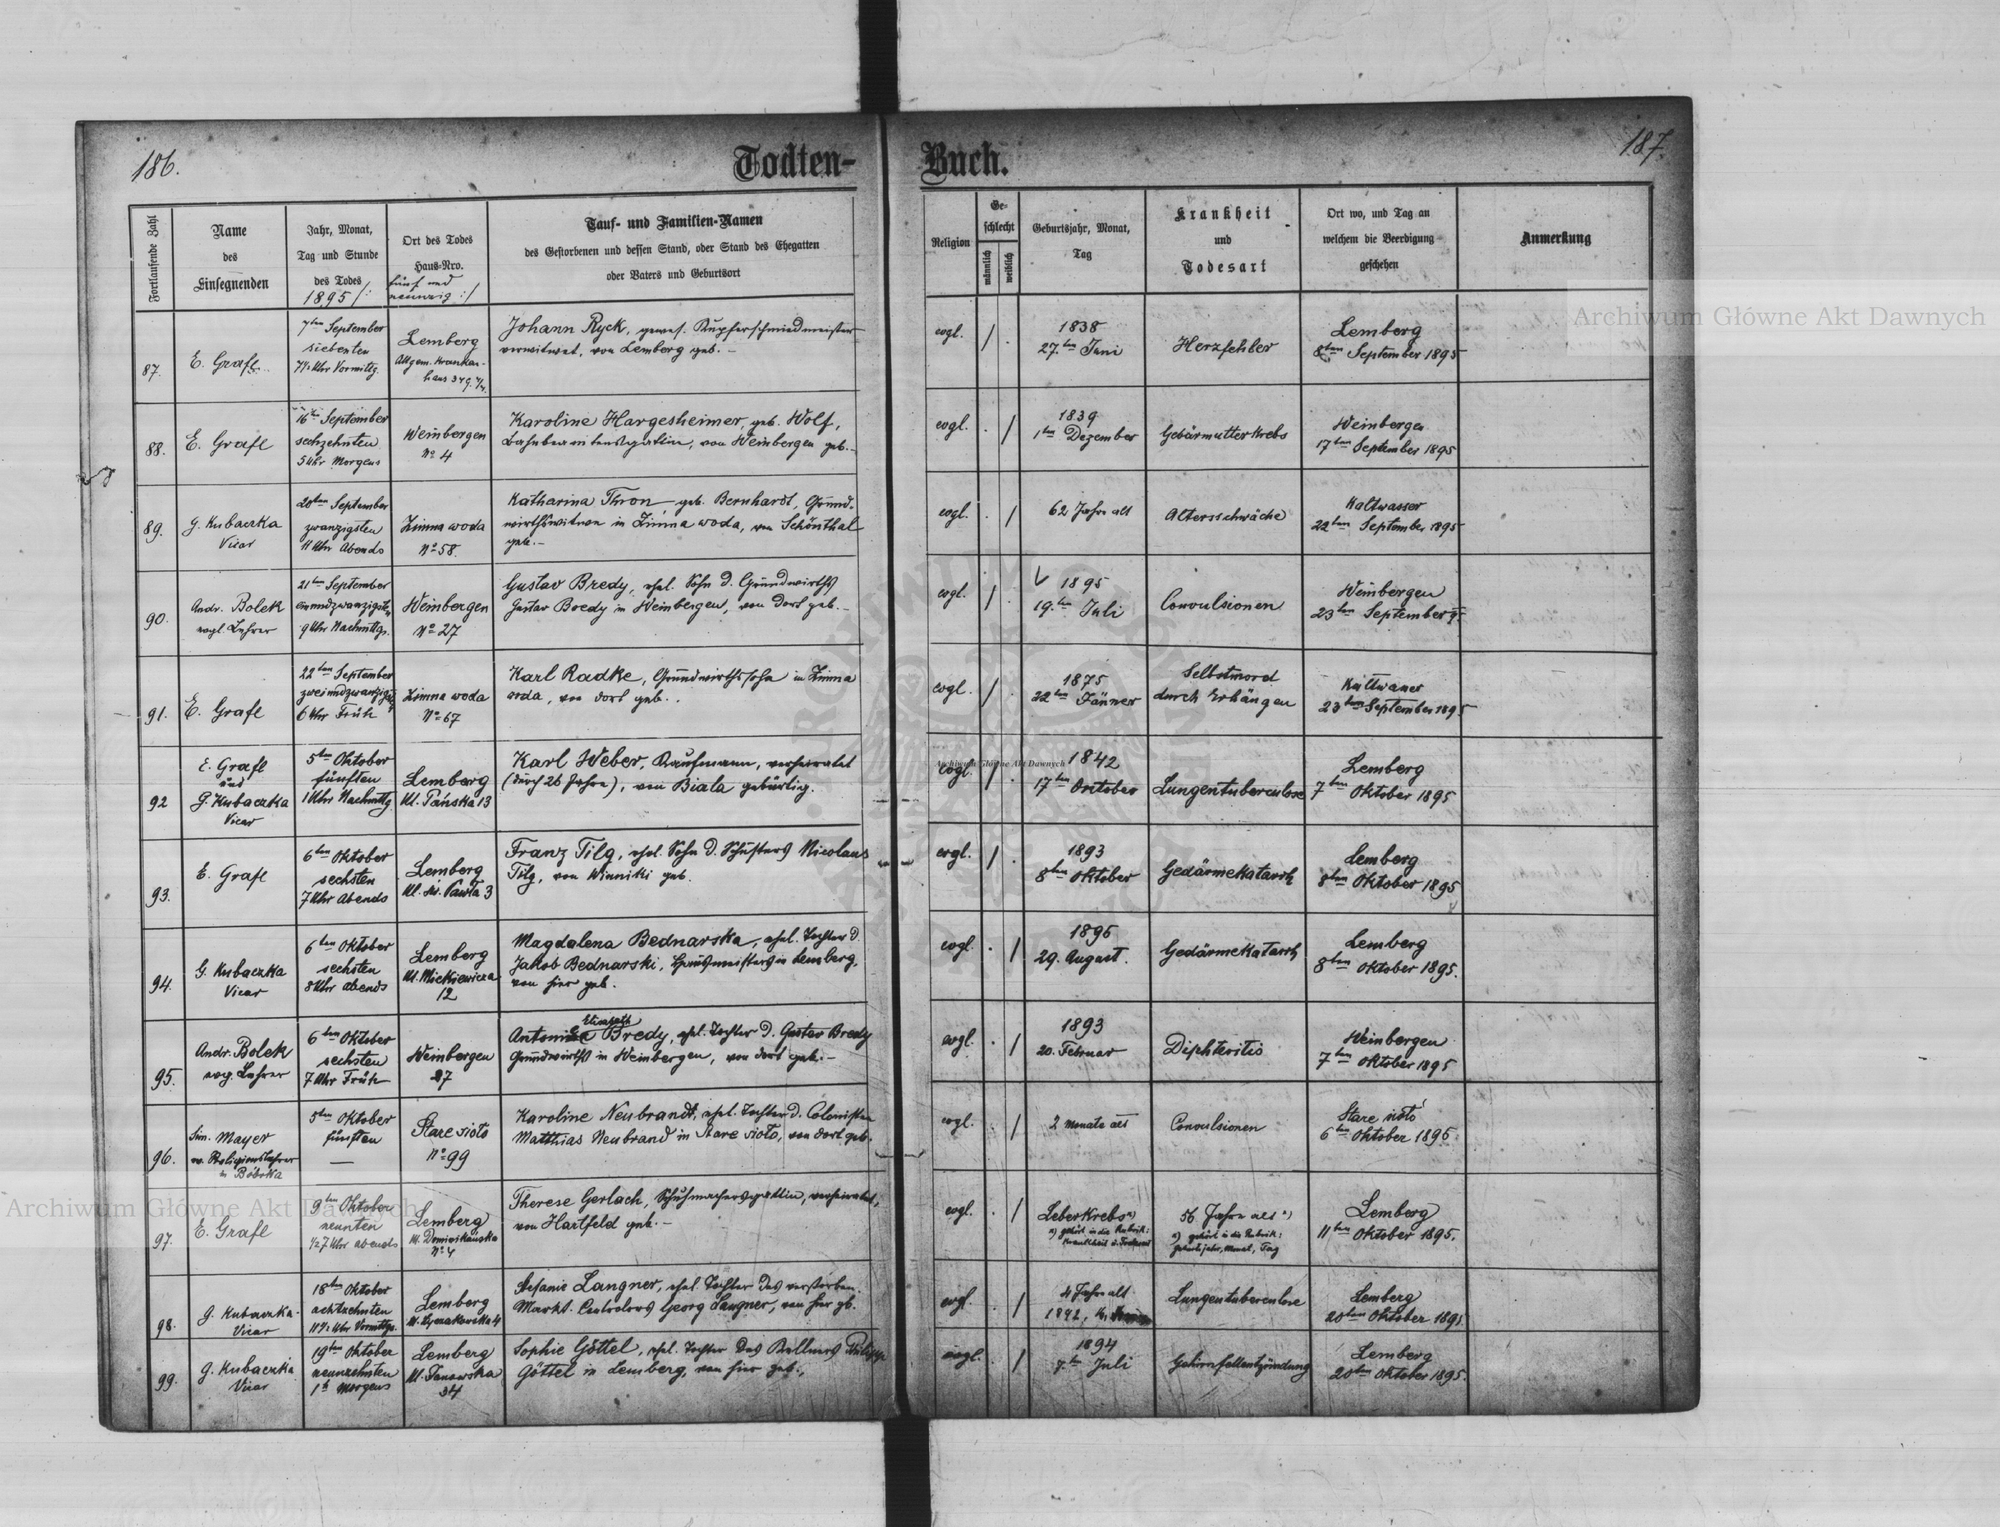 186.
Todten-
Buch.
187.
Fortlaufende Zahl
Name
des
Einsegnenden
Jahr, Monat,
Tag und Stunde
des Todes
1895 /:
Ort des Todes
Haus-Nro.
fünf und
neunzig :/
Tauf- und Familien-Namen
des Gestorbenen und dessen Stand, oder Stand des Ehegatten
oder Vaters und Geburtsort
Religion
Ge-
schlecht
männlich
weiblich
Geburtsjahr, Monat,
Tag
Krankheit
und
Todesart
Ort wo, und Tag an
welchem die Beerdigung
geschehen
Anmerkung
87.
E. Grafl
7ten September
siebenten
Uhr Vormittg.
Lemberg
Allgem. Kranken-
haus
Johann Ryck, gewes. Kupferschmiedmeister
verwitwet, von Lemberg geb. -
evgl.
1838
27.ten Juni
Herzfehler
Lemberg
8ten September 1895
88.
E. Grafl
16ten September
sechzehnten
5 Uhr Morgens
Weinbergen
No 4
Karoline Hargesheimer, geb. Wolf,
von Weinbergen geb. -
evgl.
1839
1ten Dezember
Gebärmutterkrebs
Weinbergen
17ten September 1895
89.
G. Kubaczka
Vicar
20ten September
zwanzigsten
11 Uhr Abends
Zimna woda
No 58.
Katharina Thron, geb. Bernhardt, Grund-
wirthswitwe in Zimna woda, von Schönthal
geb. -
evgl.
62 Jahre alt
Altersschwäche
Kaltwasser
22ten September 1895
90.
Andr. Bolek
evgl. Lehrer
21ten September
einundzwanzigsten
9 Uhr Nachmttgs.
Weinbergen
No 27
Gustav Bredy, ehel. Sohn d. Grundwirths
Gustav Bredy in Weinbergen, von dort geb. -
evgl.
1895
19.ten Juli
Convulsionen
Weinbergen
23ten September
91.
E. Grafl
22ten September
zweiundzwanzigsten
6 Uhr Früh
Zimna woda
No 67
Karl Radke, Grundwirthssohn in Zimna
woda, von dort geb.
evgl.
1875
22ten Jänner
Selbstmord
durch Erhängen
Kaltwasser
23ten September 1895
92
E. Grafl
und
G. Kubaczka
Vicar
5ten Oktober
fünften
1 Uhr Nachmttg
Lemberg
Ul. Pańska 13
Karl Weber, Kaufmann, verheiratet
(durch 26 Jahre), von Biala gebürtig.
evgl.
1842
17ten October
Lungentuberculose
Lemberg
7ten Oktober 1895
93.
E. Grafl
6ten Oktober
sechsten
7 Uhr Abends
Lemberg
Ul. św. Pawła 3
Franz Tilg, ehel. Sohn d. Schusters Nicolaus
Tilg, von Winniki geb.
evgl.
1893
8ten Oktober
Gedärmekatarrh
Lemberg
8ten Oktober 1895
94.
G. Kubaczka
Vicar
6ten Oktober
sechsten
8 Uhr abends
Lemberg
Ul. Mickiewicza
12
Magdalena Bednarska, ehel. Tochter d.
Jakob Bednarski, in Lemberg,
von hier geb.
evgl.
1895
29. August.
Gedärmekatarrh
Lemberg
8ten Oktober 1895.
95.
Andr. Bolek
evg. Lehrer
6ten Oktober
sechsten
7 Uhr Früh
Weinbergen
27
Elisabeth
Bredy, ehel. Tochter d. Gustav Bredy
Grundwirths in Weinbergen, von dort geb. -
evgl.
1893
20. Februar
Diphteritis
Weinbergen
7ten Oktober 1895
96.
Sim. Mayer
ev. Religionslehrer
in Bóbrka
5ten Oktober
fünften
—
Stare sioło
No 99
Karoline Neubrandt, ehel. Tochter d. Colonisten
Matthias Neubrand in Stare sioło, von dort geb.
evgl.
2 Monate alt
Convulsionen
Stare sioło
6ten Oktober 1895
97.
E. Grafl
9ten Oktober
neunten
1/2 7 Uhr abends
Lemberg
Ul. Dominikańska
No 4
Therese Gerlach, Schuhmachersgattin, verheiratet,
von Hartfeld geb. -
evgl.
Leberkrebs
gehört in die Rubrik:
Krankheit u. Todesart
56 Jahre alt
gehört in die Rubrik:
Geburtsjahr, Monat, Tag
Lemberg
11ten Oktober 1895.
98.
G. Kubaczka
Vicar
18ten Oktober
achtzehnten
Uhr Vormttgs.
Lemberg
Ul. Łyczakowska 4
Stefanie Langner, ehel. Tochter des verstorben.
Markt. Controlors Georg Langner, von hier gb.
evgl.
4 Jahre alt
1892,
Lungentuberculose
Lemberg
20ten Oktober 1895
99.
G. Kubaczka
Vicar
19ten Oktober
neunzehnten
1h Morgens
Lemberg
Ul. Janowska
34
Sophie Göttel, ehel. Tochter des Kellners Philipp
Göttel in Lemberg, von hier geb.
evgl.
1894
7.ten Juli
Gehirnfellentzündung
Lemberg
20ten Oktober 1895.
Archiwum Główne Akt Dawnych
Archiwum Główne Akt Dawnych
Archiwum Główne Akt Dawnych